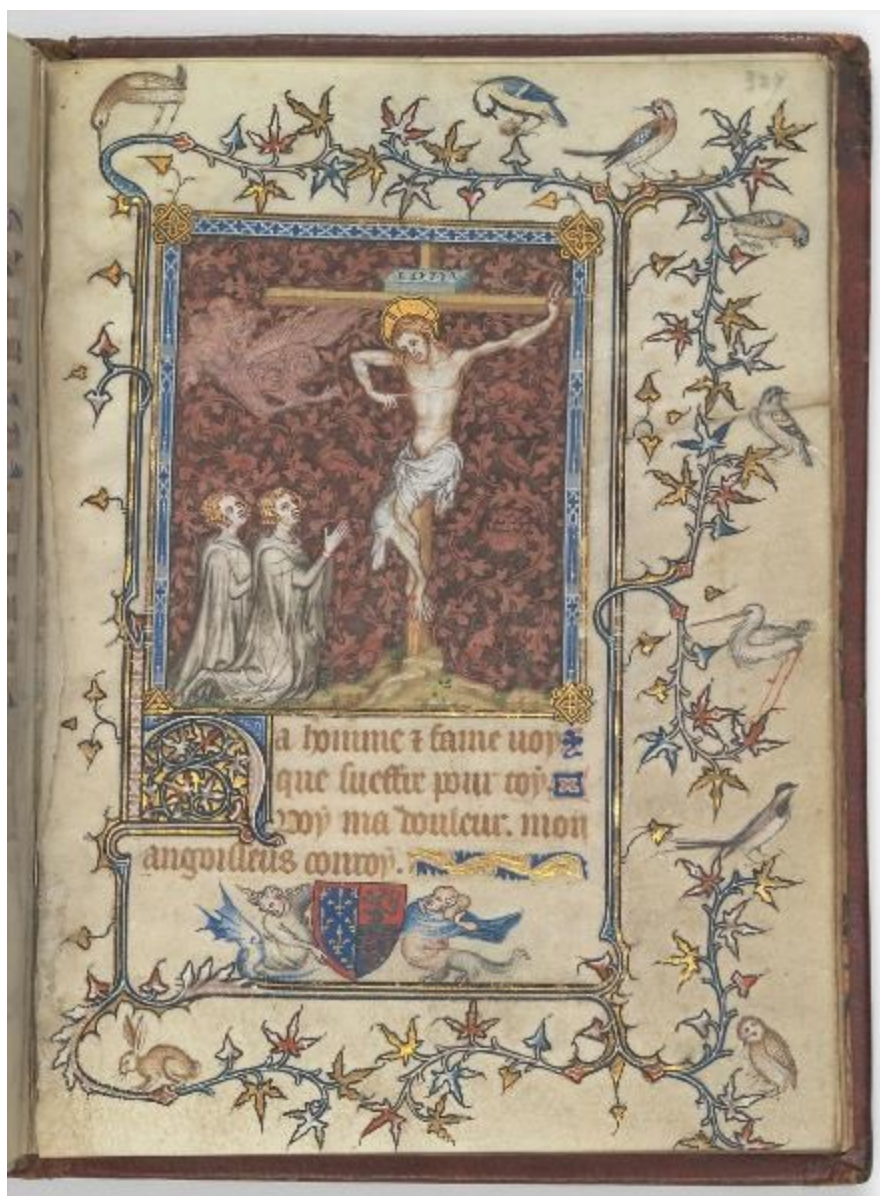 328
INRI
Ha homme & fame voy
que sueffre pour toy.
Voy ma douleur. mon
angoisseus conroy.